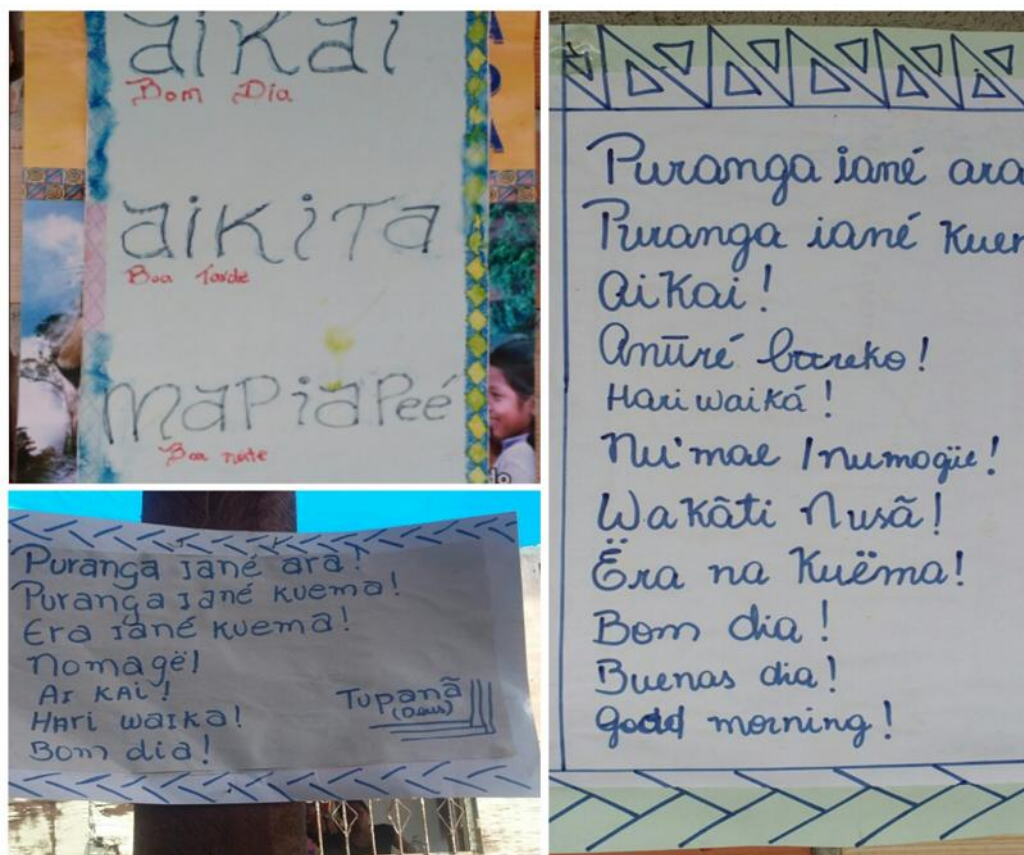 aikai
Bom Dia
aikita
Boa Tarde
mapiapeé
Boa noite
Puranga iané ara!
Puranga iané kuema!
Era iané kuema!
Nomagë!
Ai kai!
Hari waika!
Bom dia!
Tupanã
(Deus)
Puranga iané ara
Puranga iané kuem
Aikai!
Anūré bareko!
Hari waiká!
Nu'mae / numogüe!
Wakãti Nusã!
Ëra na Kuëma!
Bom dia!
Buenas dia!
good morning!